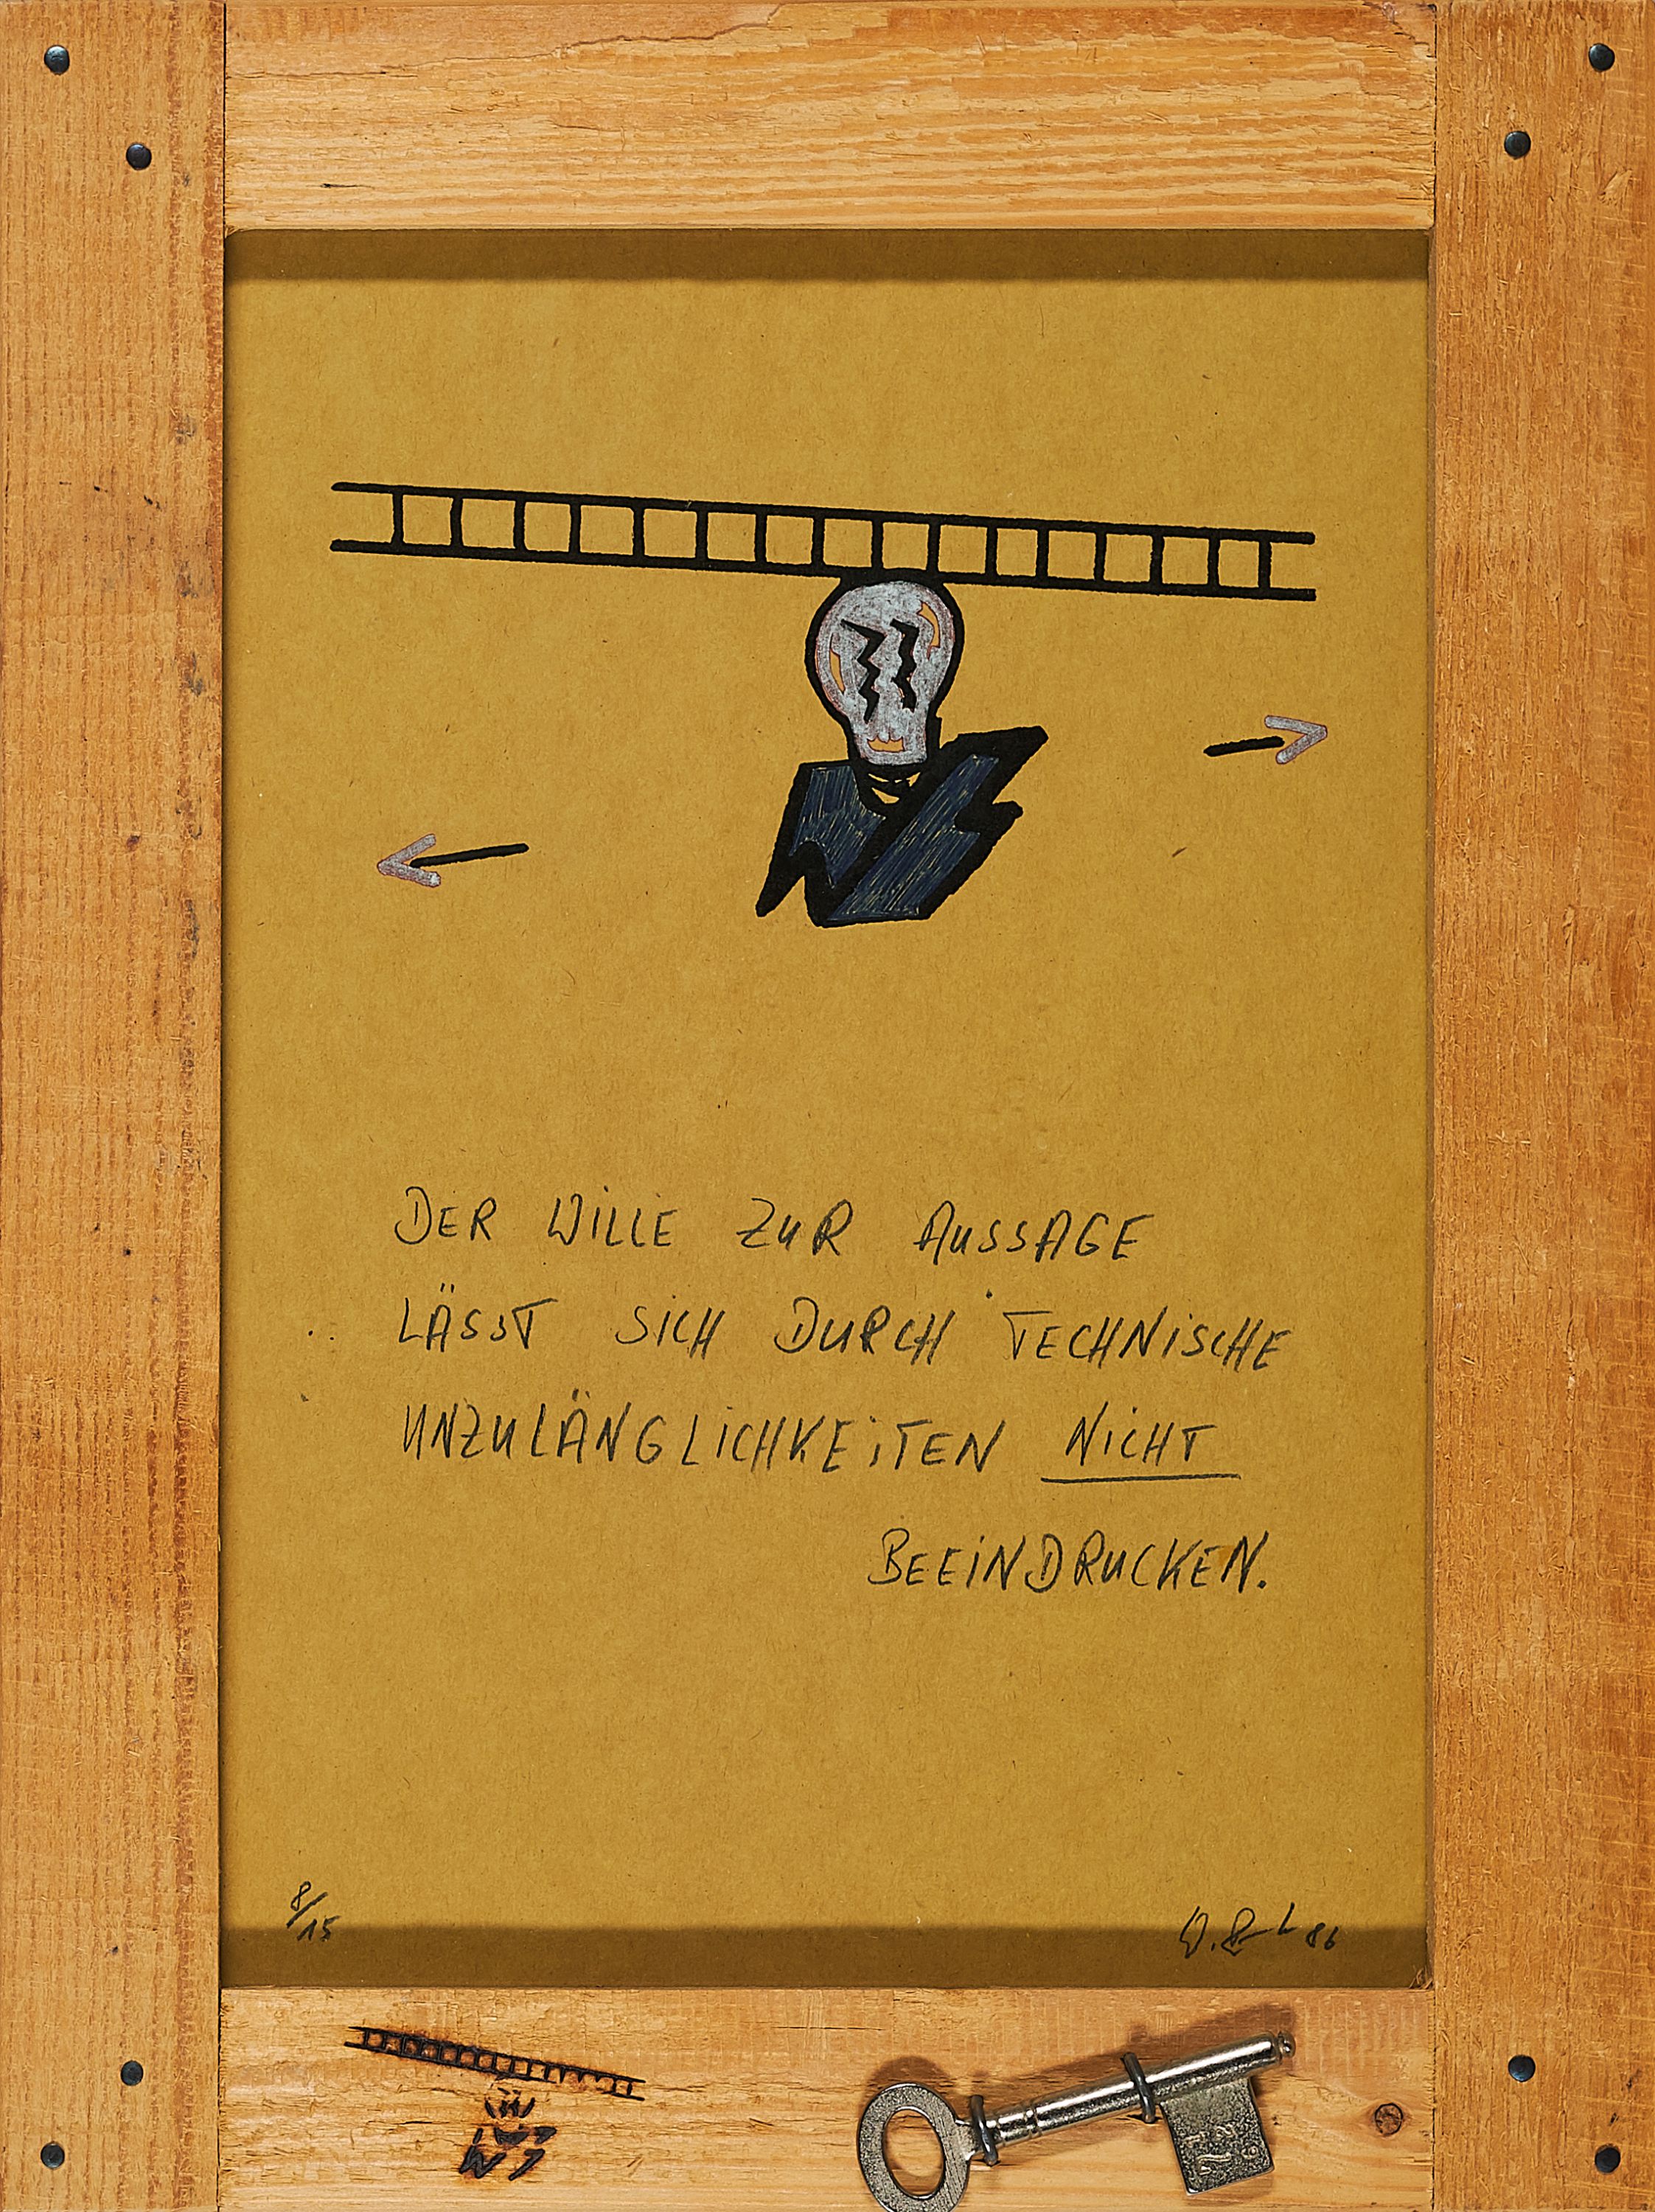 DER WILLE ZUR AUSSAGE
LÄSST SICH DURCH TECHNISCHE
UNZULÄNGLICHKEITEN NICHT
BEEINDRUCKEN.
8/15
86